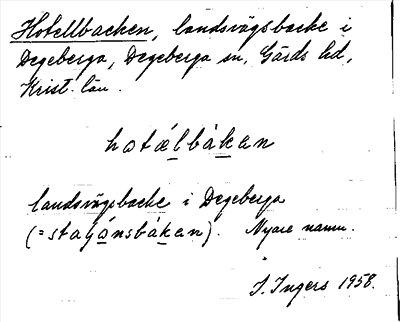 Hotellbacken, landsvägsbacke i
Degeberga, Degeberga sn, Gärds hd,
Krist. län.
hotǽlbáken
landsvägsbacke i Degeberga
(= stayánsbáken). Nyare namn.
I. Ingers 1958.